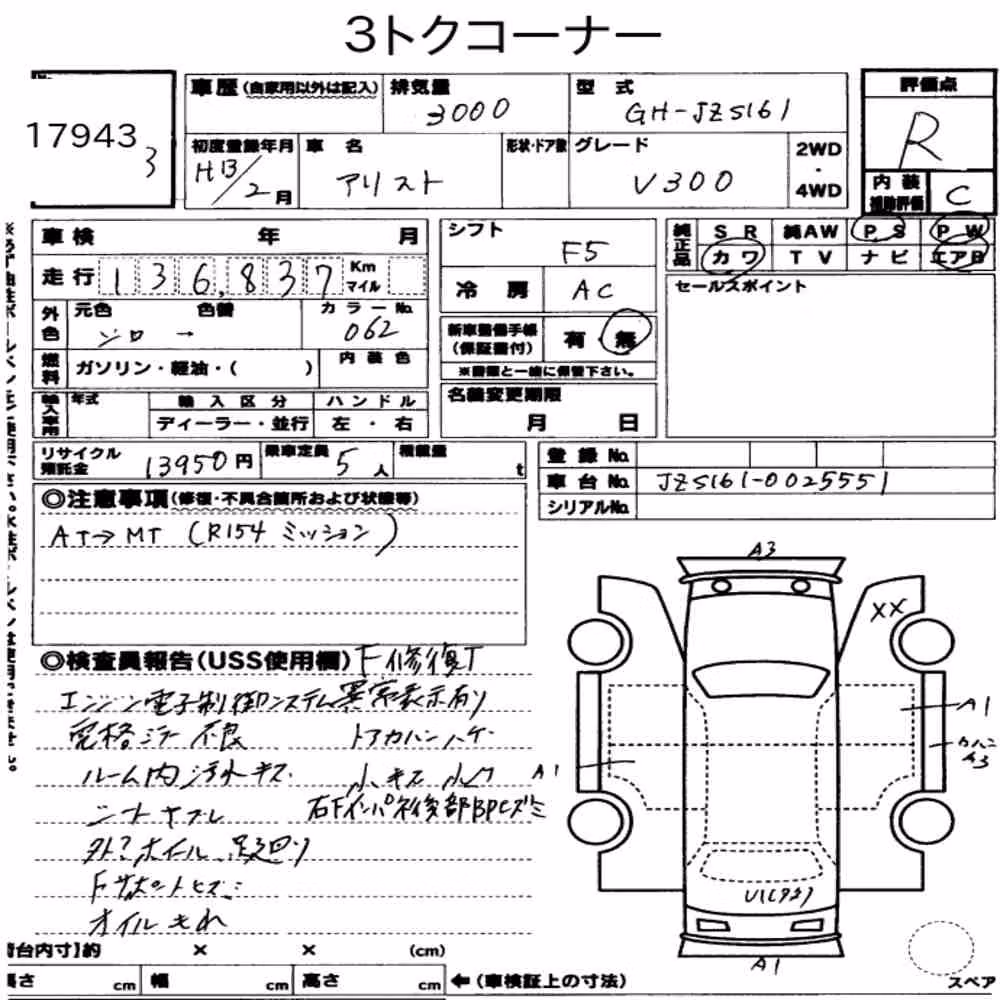 3トクコーナー
17943
3
車歴 (自家用以外は記入)
排気量 3000
型式 GH-JZS161
評価点 R
初度登録年月 H13/2月
車名 アリスト
形状・ドア数
グレード V300
2WD・4WD
内装補助評価 C
車検 年 月
走行 136,837 Km マイル
シフト F5
冷房 AC
純正品 SR 純AW PS PW
カワ TV ナビ エアB
セールスポイント
外色 元色 シロ 色替 → カラーNo. 062
新車整備手帳(保証書付) 有・無
※書類と一緒に保管下さい。
燃料 ガソリン・軽油・( )
内装色
名義変更期限 月 日
輸入車用 年式 輸入区分 ハンドル
ディーラー・並行 左・右
リサイクル預託金 13950円
乗車定員 5人
積載量 t
登録No.
車台No. JZS161-0025551
シリアルNo.
◎注意事項(修復・不具合箇所および状態等)
AT→MT (R154 ミッション)
◎検査員報告(USS使用欄) F修復了
エンジン電子制御システム異常表示有り
ルーム内汚れキズ 小キズ 小凹
シートヤブレ
外アホイール 足廻り
Fサポートヒズミ
オイルもれ
A3
XX
A1
A3
A1
A1
スペア
荷台内寸】約 × × (cm)
長さ cm 幅 cm 高さ cm ←(車検証上の寸法)